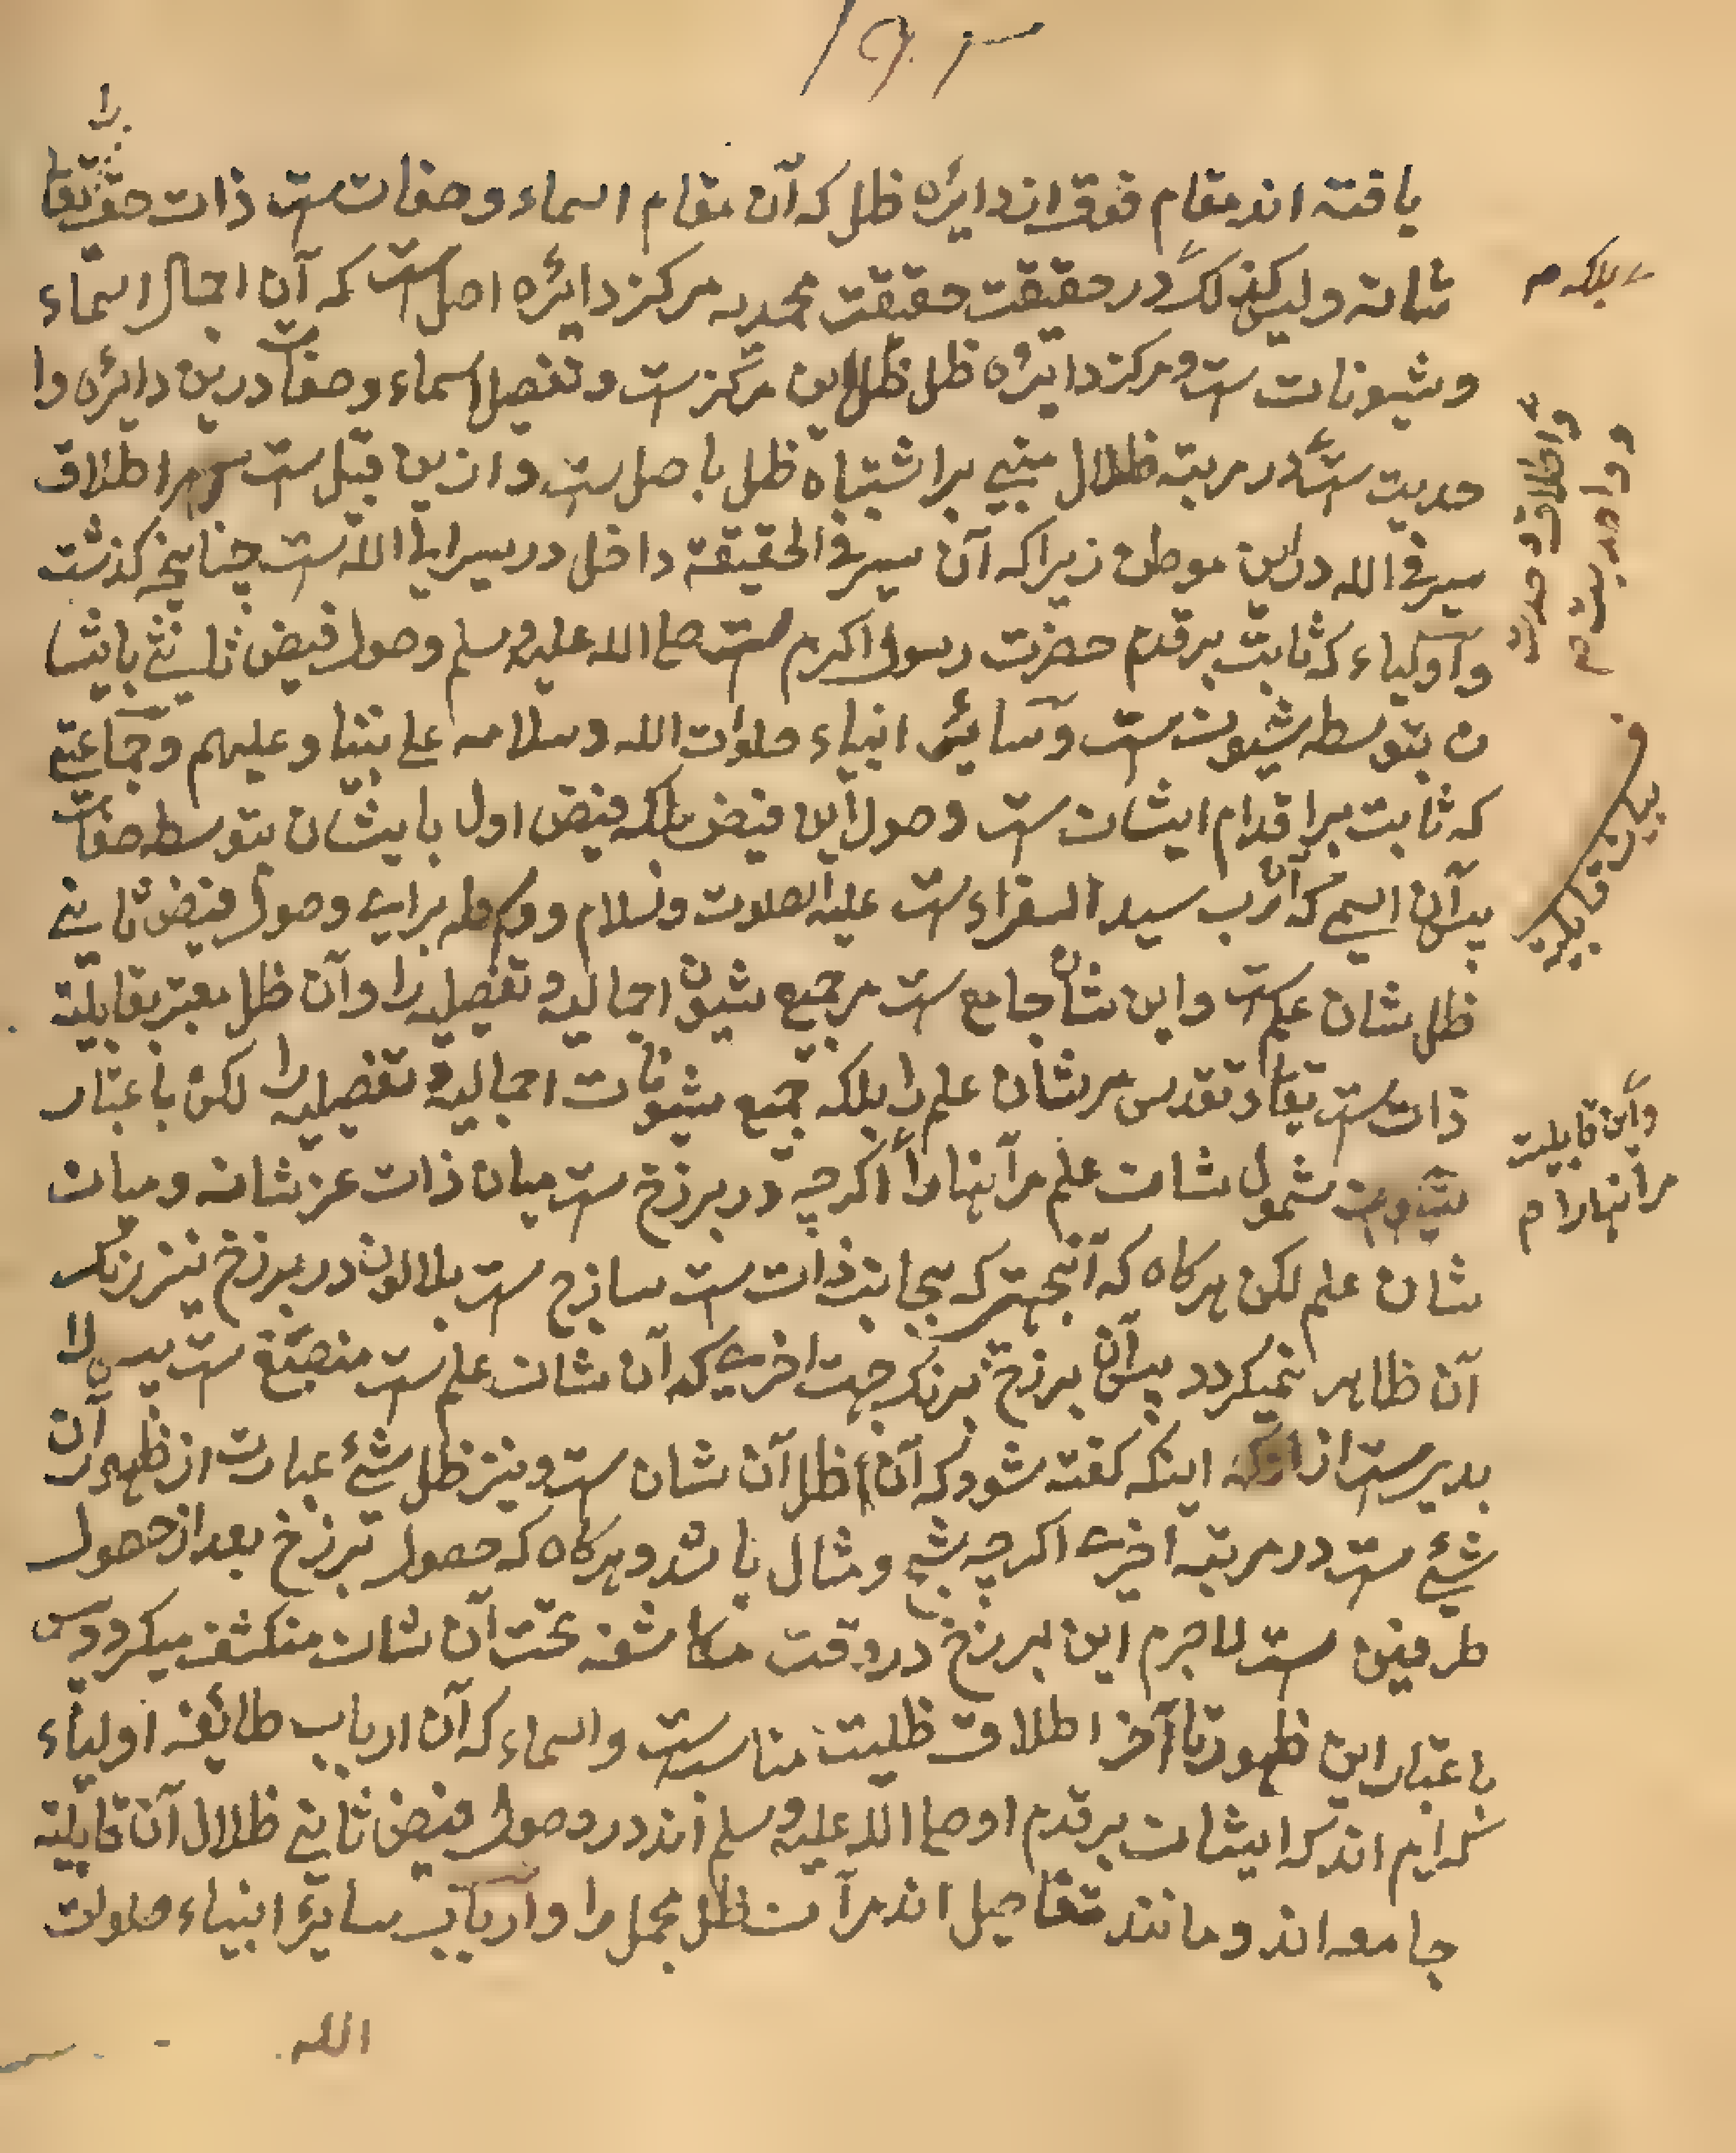 یافته اند مقام فوق از دایره ظل که آن مقام اسماء وصفات ست ذات حق تعا را
شانه ولیس کذلک در حقیقت حقیقت محمدیه مرکز دایره اصل ست که آن اجمال اسماء
وشیونات ست ومرکز دایره ظل ظل این مرکز ست وتفصیل اسماء وصفات درین دایره وا
حدیت ست در مرتبه ظلال مبنی بر اشتباه ظل باصل ست وازین قبیل ست مر اطلاق
سیر فی الله درین موطن زیرا که آن سیر فی الحقیقة داخل در سیر الی الله ست چنانچه کذشت
واولیاء که ثابت بر قدم حضرت رسول اکرم ست صلی الله علیه وسلم وصول فیض ثانی بایشا
ن بتوسطه شیون ست وسائر انبیاء صلوات الله وسلامه علی نبینا وعلیهم وجماعتی
که ثابت بر اقدام ایشان ست وصول این فیض بلکه فیض اول بایشان بتوسط صفات
پس آن اسمی که آن رب سید السفراء ست علیه الصلوت وسلام ووسطه برای وصول فیض ثانی
ظل شان علم ست واین شان جامع ست مر جمیع شیون اجمالیه وتفصیلیه را وآن ظل معتبر بقابلیة
ذات ست تعا وتقدس مر شان علم را بلکه جمیع شیونات اجمالیه وتفصیلیه را لکن باعتبار
شمول شان علم مر آنها را اکرچه در برزخ ست میان ذات عز شانه ومیان
شان علم لکن هرکاه که آنجهتی که بجانب ذات ست ساذج ست بلا لون در برزخ نیز رنک
آن ظاهر نمیکردد پس آن برزخ برنک جهت اخری که آن شان علم ست منصبغ ست پس لا
بدیرست از اینکه کفته شود که آن ظل آن شان ست ونیز ظل شیء عبارت از ظهور آن
شیء ست در مرتبه اخری اکرچه شبح ومثال باشد وهرکاه که حصول برزخ بعد از حصول
طرفین ست لاجرم این برزخ در وقت مکاشفه تحت آن شان منکشف میکردد پس
باعتبار این ظهور تا آخر اطلاق ظلیت مناسب ست واسماء که آن ارباب طائفه اولیاء
کرام اند که ایشان بر قدم او صلی الله علیه وسلم اند در وصول فیض ثانی ظلال آن قابلیة
جامعه اند ومانند تفاصیل اند مر آن ظل مجمل را وارباب سایر انبیاء صلوات
الله
بلکه م
واطلاق وحدت
وواحدیت م
بیان قابلیة
واین قابلیت
مر آنها را م